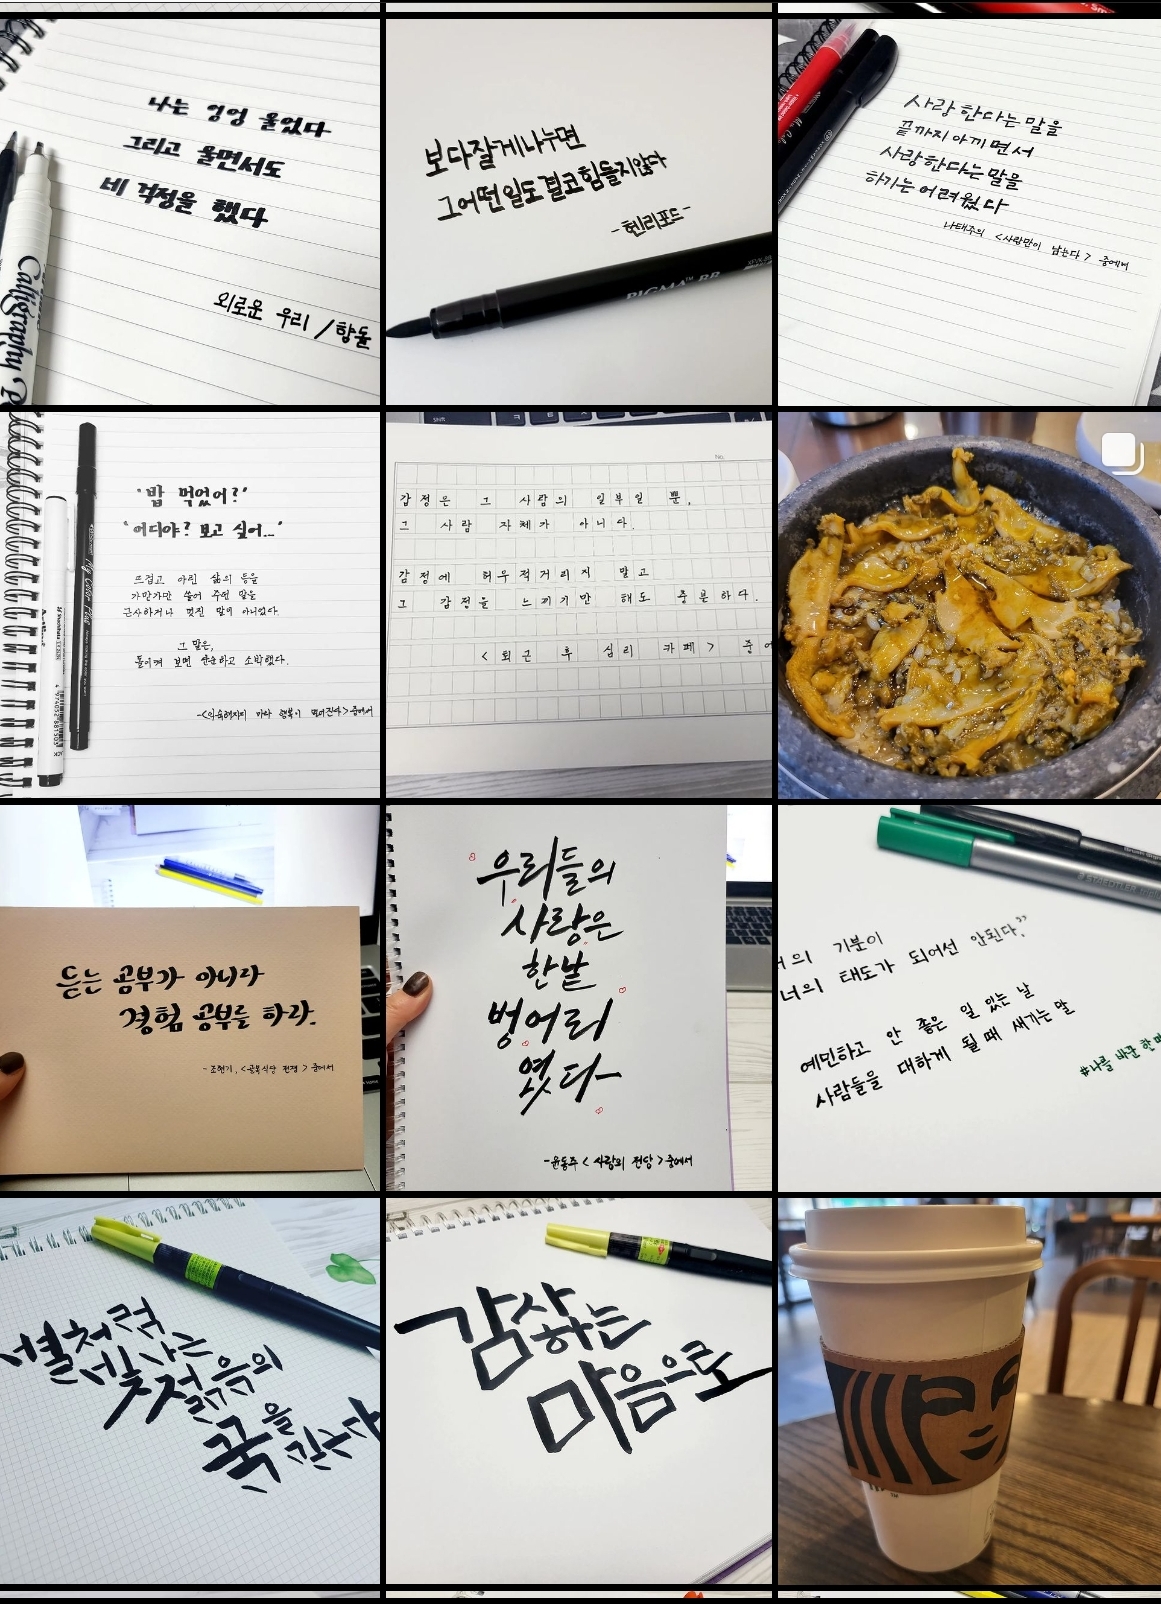 나는 엉엉 울었다
그리고 울면서도
네 걱정을 했다
외로운 우리 / 향돌
Calligraphy P
보다잘게나누면
그어떤일도결코힘들지않다
-헨리포드-
PIGMA™ BB
사랑한다는 말을
끝까지 아끼면서
사랑한다는 말을
하기는 어려웠다
나태주의 <사랑만이 남는다> 중에서
'밥 먹었어?'
'어디야? 보고 싶어...'
뜨겁고 아린 삶의 등을
가만가만 쓸어 주던 말들
근사하거나 멋진 말이 아니었다.
그 말은,
돌이켜 보면 단순하고 소박했다.
-<익숙해지지 마라 행복이 멀어진다>중에서
No.
감정은 그 사람의 일부일 뿐,
그 사람 자체가 아니다.
감정에 허우적거리지 말고
그 감정을 느끼기만 해도 충분하다.
<퇴근 후 심리 카페> 중에
듣는 공부가 아니라
경험 공부를 하라.
- 조현기, <골목식당 전쟁> 중에서
우리들의
사랑은
한낱
벙어리
였다
-윤동주 <사랑의 전당>중에서
STAEDTLER
의 기분이
너의 태도가 되어선 안된다."
예민하고 안 좋은 일 있는 날
사람들을 대하게 될 때 새기는 말
#나를 바꾼 한 마
별처럼
빛나는
젊음의
국을 긷는다
감사하는
마음으로